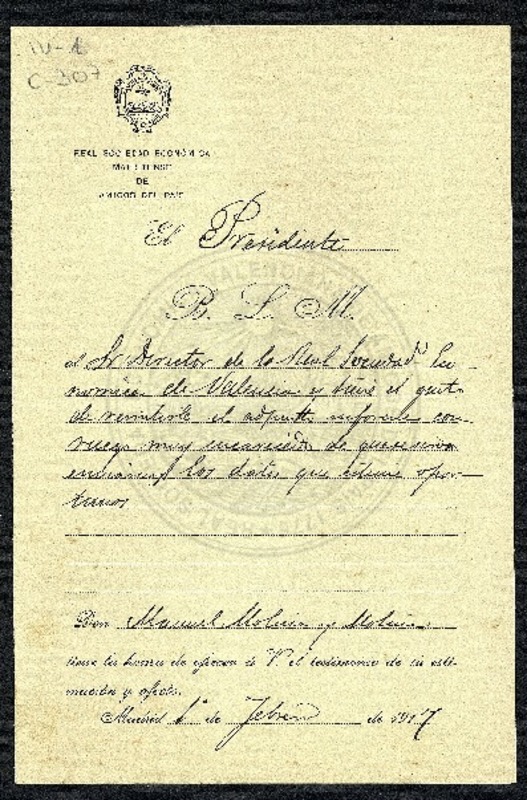 IV-1
C-307
REAL SOCIEDAD ECONÓMICA
MATRITENSE
DE
AMIGOS DEL PAIS
El Presidente
B. L. M.
al Sr Director de la Real Sociedad Eco
nomica de Valencia y tiene el gusto
de remitirle el adjunto informe con
ruego muy encarecido de que se sirva
enviarme los datos que estime opor-
tunos
Don Manuel Molina y Molina
tiene la honra de ofrecer á V. el testimonio de su esti-
mación y afecto.
Madrid 1º de Febrero de 1917